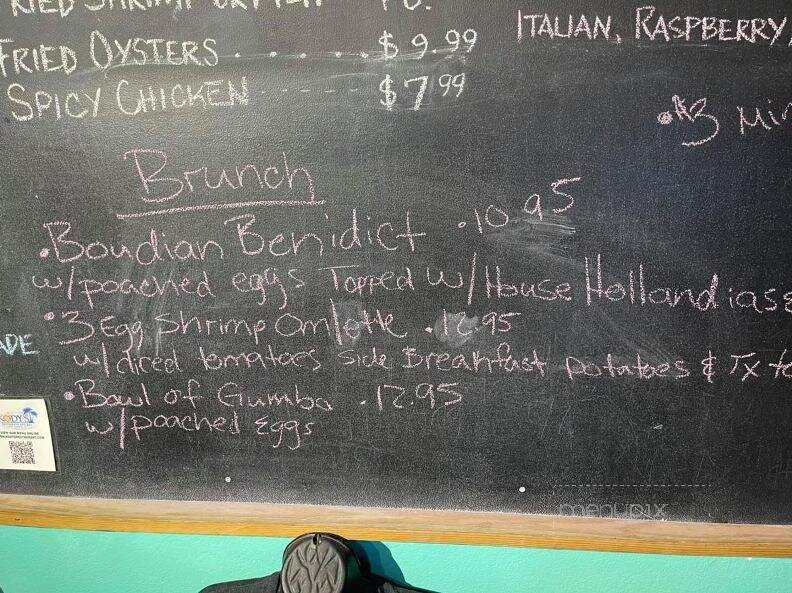 FRIED OYSTERS ........ $9.99
SPICY CHICKEN ----- $7.99
ITALIAN, RASPBERRY,
• $3 Mi
Brunch
• Boudian Benidict • 10.95
w/poached eggs Topped w/House Hollandiase
• 3 Egg Shrimp Omlette • 12.95
w/diced tomatoes side Breakfast potatoes & TX to
• Bowl of Gumbo • 12.95
w/poached Eggs
ADE
menupix